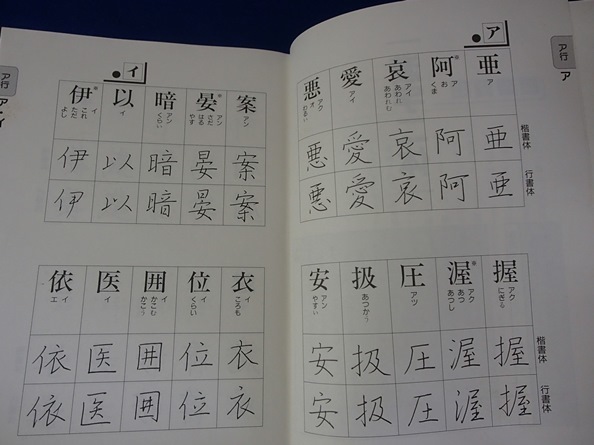 ア行 ア
ア
亜 阿 哀 愛 悪
ア
ア お くま
アイ あわれ あわれむ
アイ
アク オ わるい
楷書体
亜 阿 哀 愛 悪
行書体
亜 阿 哀 愛 悪
握 渥 圧 扱 安
アク にぎる
アク あつ あつし
アツ
あつかう
アン やすい
楷書体
握 渥 圧 扱 安
行書体
握 渥 圧 扱 安
イ
案 晏 暗 以 伊
アン
アン さだ はる やす
アン くらい
イ
イ これ ただ よし
案 晏 暗 以 伊
案 晏 暗 以 伊
衣 位 囲 医 依
イ ころも
イ くらい
イ かこむ かこう
イ
イ エ
衣 位 囲 医 依
衣 位 囲 医 依
ア行 ア イ